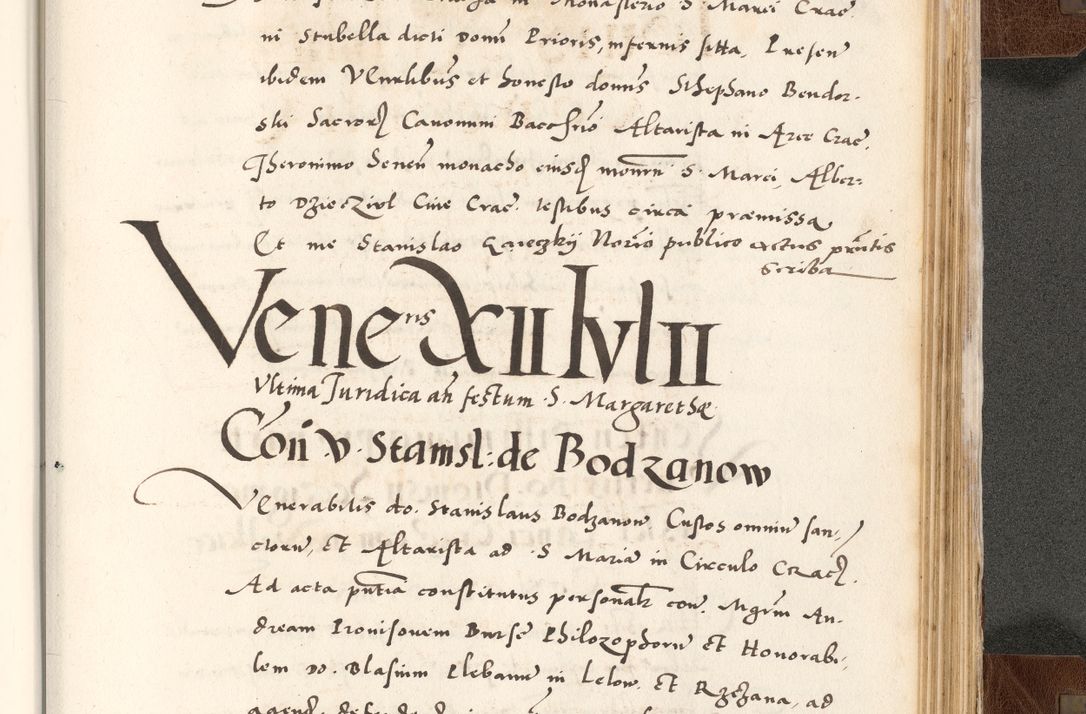 in Monasterio S. Marci Crac.
ni Stubella dicti Domi Prioris, infernis sitta, Presen
ibidem Venrlibus et honesto domns Sthephano Bendor-
ski Sacror Canonum Bacchrio Altarista in Arce Crac,
Jheronimo Senen monacho eiusd monrii S. Marci, Alber-
to Dziecziol Cive Crac. testibus circa præmissa
Et me Stanislao Gaieczkij Norio publico actus pntis
Scriba
Veneris XII Iulii
Ultima Juridica an festum S. Margarethæ
Con v. Stanisl: de Bodzanow
Venerabilis do. Stanislaus Bodzanow Custos omniu san-
ctoru, et Altarista ad S Maria in Circulo Crac.
Ad acta pntia constitutus personalr con. Mgrm An-
dream Pronisovem Burse Philozophoru et Honorabi-
lem Do. Blasium Plebanu in Lelow. et Rzezana, ad